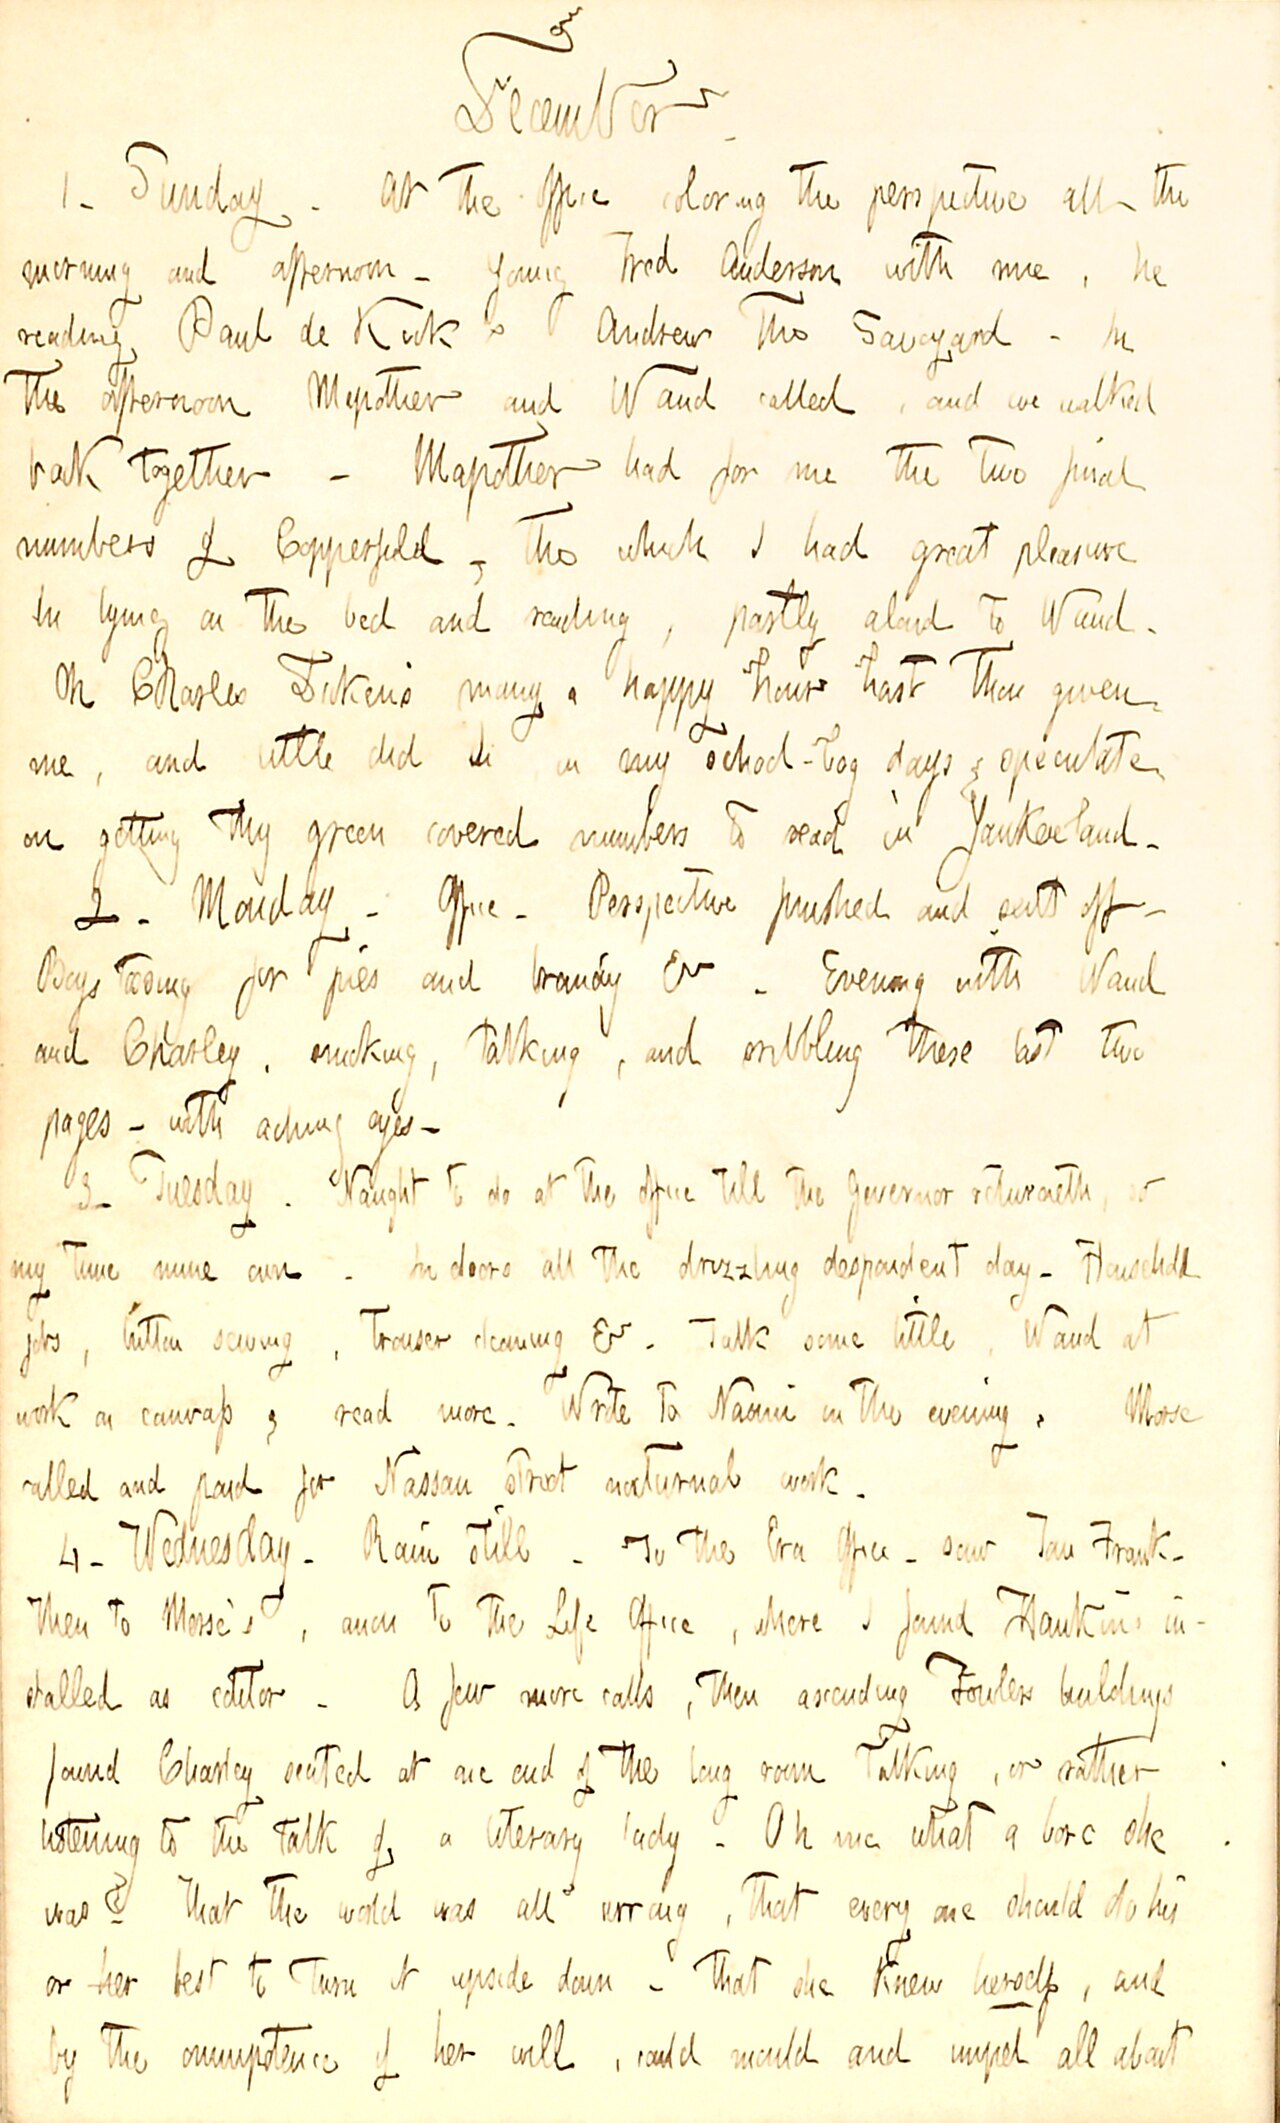 December.
1 - Sunday - At the office coloring the perspective all the
morning and afternoon - young Fred Anderson with me, he
reading Paul de Kock's Andrew the Savoyard - In
the afternoon Mapother and Waud called, and we walked
back together - Mapother had for me the two final
numbers of Copperfield, the which I had great pleasure
in lying on the bed and reading, partly aloud to Waud.
Oh Charles Dickens many a happy hour hast thou given
me, and little did I in my school-boy days speculate
on getting thy green covered numbers to read in Yankeeland -
2 - Monday - Office - Perspective finished and sent off -
Boys tossing for pies and brandy &c - Evening with Waud
and Charley, smoking, talking, and scribbling these last two
pages - with aching eyes -
3 - Tuesday. Naught to do at the office till the Governor returneth, so
my time mine own - In doors all the drizzling despondent day - Household
jobs, button sewing, trouser cleaning &c - Talk some little, Waud at
work on canvass, read more - Write to Naomi in the evening. Morse
called and paid for Nassau street nocturnal work -
4 - Wednesday - Rain still - To the Era Office - saw Tom Frank -
then to Morse's, anon to the Life Office, where I found Hankins in-
stalled as editor - A few more calls, then ascending Fowlers buildings
found Charley seated at one end of the long room talking, or rather
listening to the talk of a literary lady - Oh me what a bore she
was! That the world was all wrong, that every one should do his
or her best to turn it upside down - that she knew herself, and
by the omnipotence of her will, could mould and impel all about